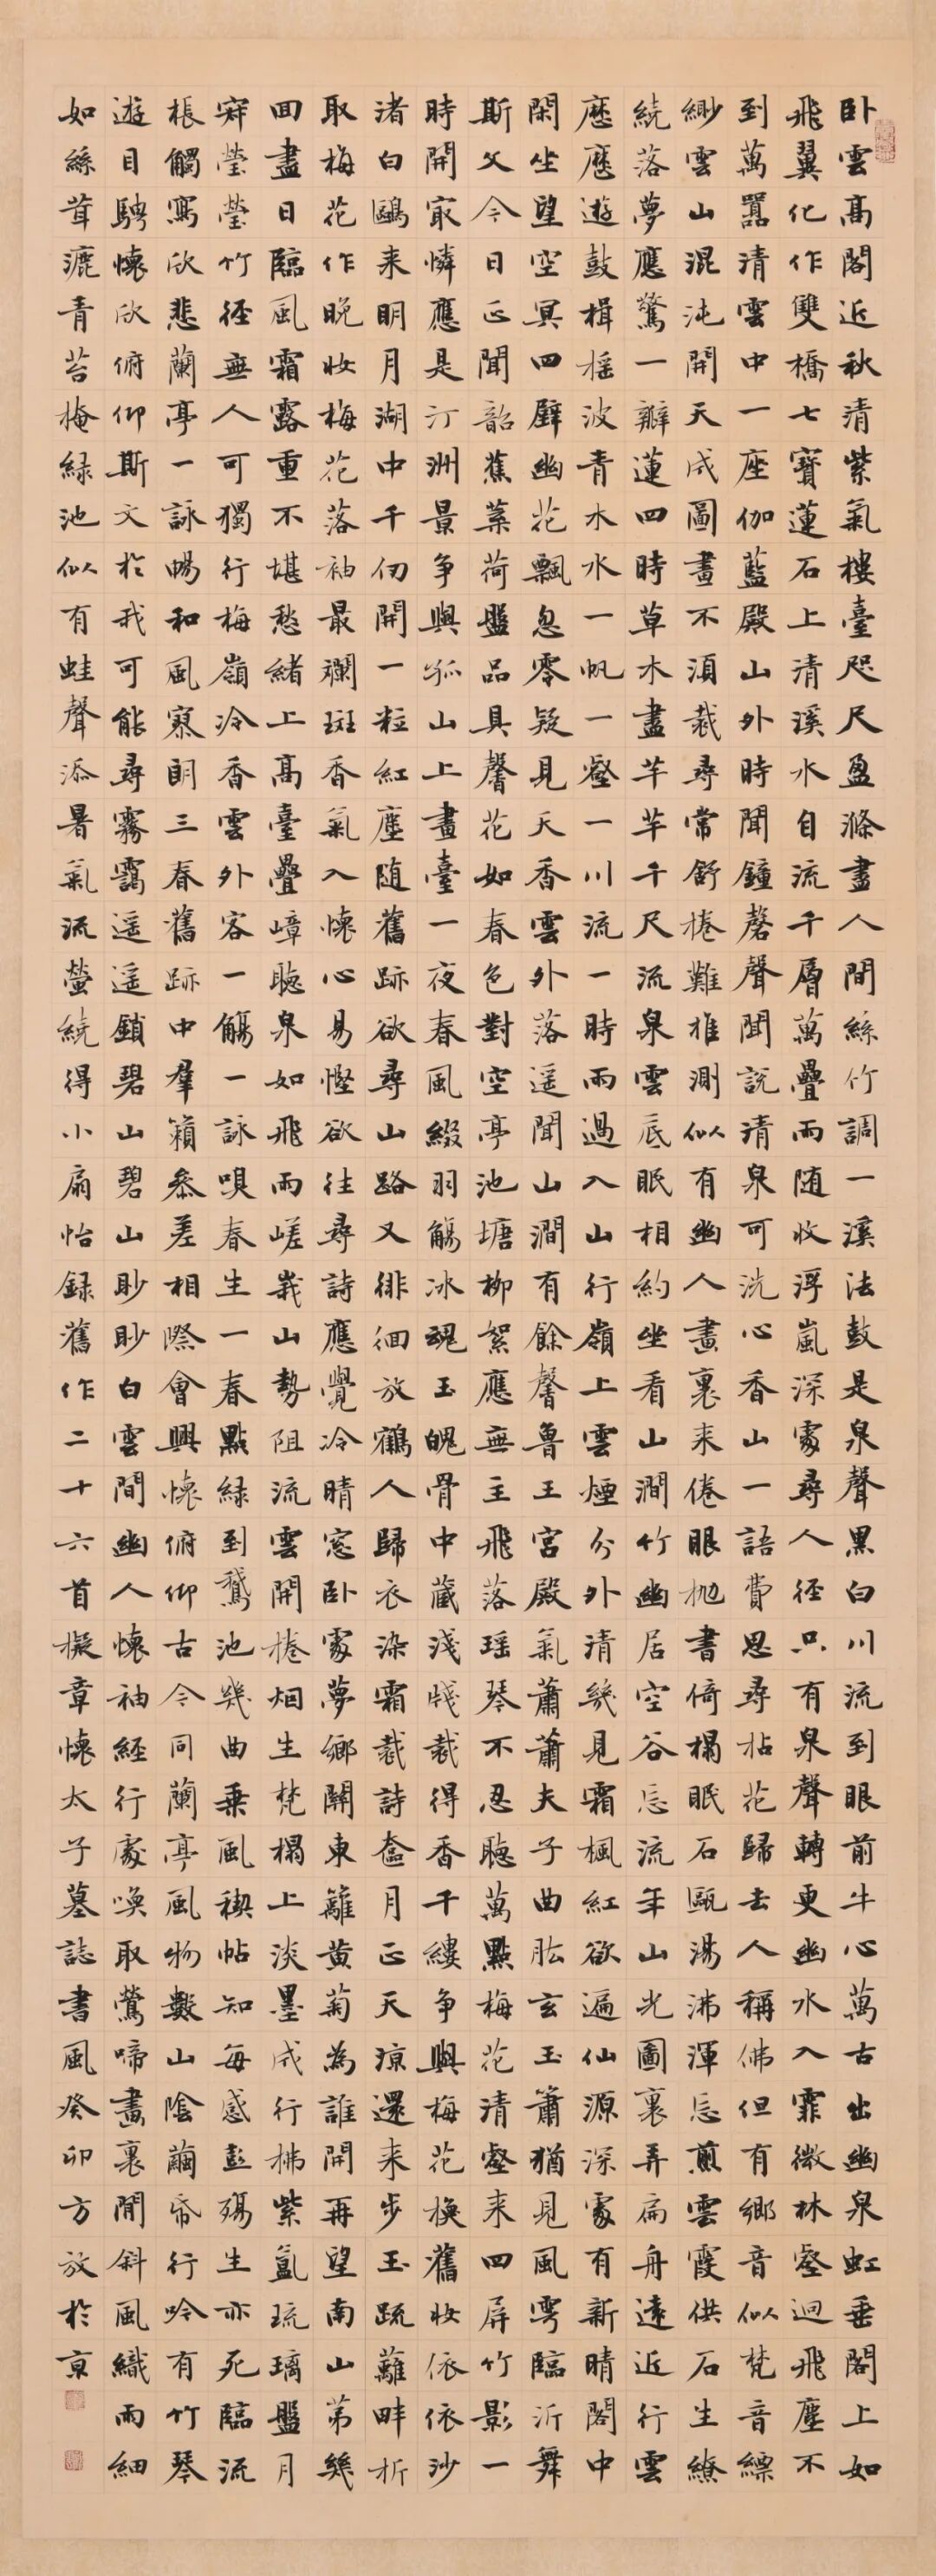 卧雲高閣近秋清紫氣樓臺咫尺盈滌盡人間絲竹調一溪法鼓是泉聲黑白川流到眼前牛心萬古出幽泉虹垂閣上如
飛翼化作雙橋七寶蓮石上清溪水自流千層萬疊雨随收浮嵐深處尋人徑只有泉聲轉更幽水入霏微林壑迥飛塵不
到萬嚣清雲中一座伽藍殿山外時聞鐘磬聲聞說清泉可洗心香山一語費思尋拈花歸去人稱佛但有鄉音似梵音縹
緲雲山混沌開天成圖畫不須裁尋常舒捲難推測似有幽人畫裏来倦眼抛書倚榻眠石甌湯沸渾忘煎雲霞供石生繚
繞落夢應驚一瓣蓮四時草木盡芊芊千尺流泉雲底眠相約坐看山澗竹幽居空谷忘流年山光圖裏弄扁舟遠近行雲
歷歷遊鼓楫摇波青水水一帆一壑一川流一時雨過入山行嶺上雲煙分外清幾見霜楓紅欲遍仙源深處有新晴閣中
閑坐望空冥四壁幽花飄忽零疑見天香雲外落遥聞山澗有餘馨魯王宫殿氣蕭蕭夫子曲肱玄玉簫猶見風雩臨沂舞
斯文今日正聞韶蕉葉荷盤品具馨花如春色對空亭池塘柳絮應無主飛落瑶琴不忍聽萬點梅花清壑来四屏竹影一
時開最憐應是汀洲景争與孤山上畫臺一夜春風綴羽觴冰魂玉魄骨中藏淺牋裁得香千縷争與梅花换舊妆依依沙
渚白鷗来明月湖中千仞開一粒紅塵随舊跡欲尋山路又徘徊放鶴人歸衣染霜裁詩奩月正天凉還来步玉疏蘺畔折
取梅花作晚妆梅花落袖最斕斑香氣入懷心易慳欲往尋詩應覺冷晴窓卧處夢鄉關東籬黄菊為誰開再望南山第幾
回盡日臨風霜露重不堪愁緒上高臺疊嶂聽泉如飛雨嵯峩山勢阻流雲開捲烟生梵榻上淡墨成行拂紫氳琉璃盤月
穽瑩瑩竹徑無人可獨行梅嶺冷香雲外客一觴一詠嗅春生一春點緑到鵞池幾曲乗風禊帖知每感彭殤生亦死臨流
棖觸寫欣悲蘭亭一詠暢和風寡朗三春舊跡中羣籟叅差相際會興懷俯仰古今同蘭亭風物數山陰繭帋行吟有竹琴
遊目騁懷欣俯仰斯文於我可能尋霧靄遥遥鎖碧山碧山眇眇白雲間幽人懷袖経行處唤取鶯啼畫裏閒斜風織雨細
如絲茸漉青苔掩緑池似有蛙聲添暑氣流螢繞得小扇怡録舊作二十六首擬章懷太子墓誌書風癸卯方放於京